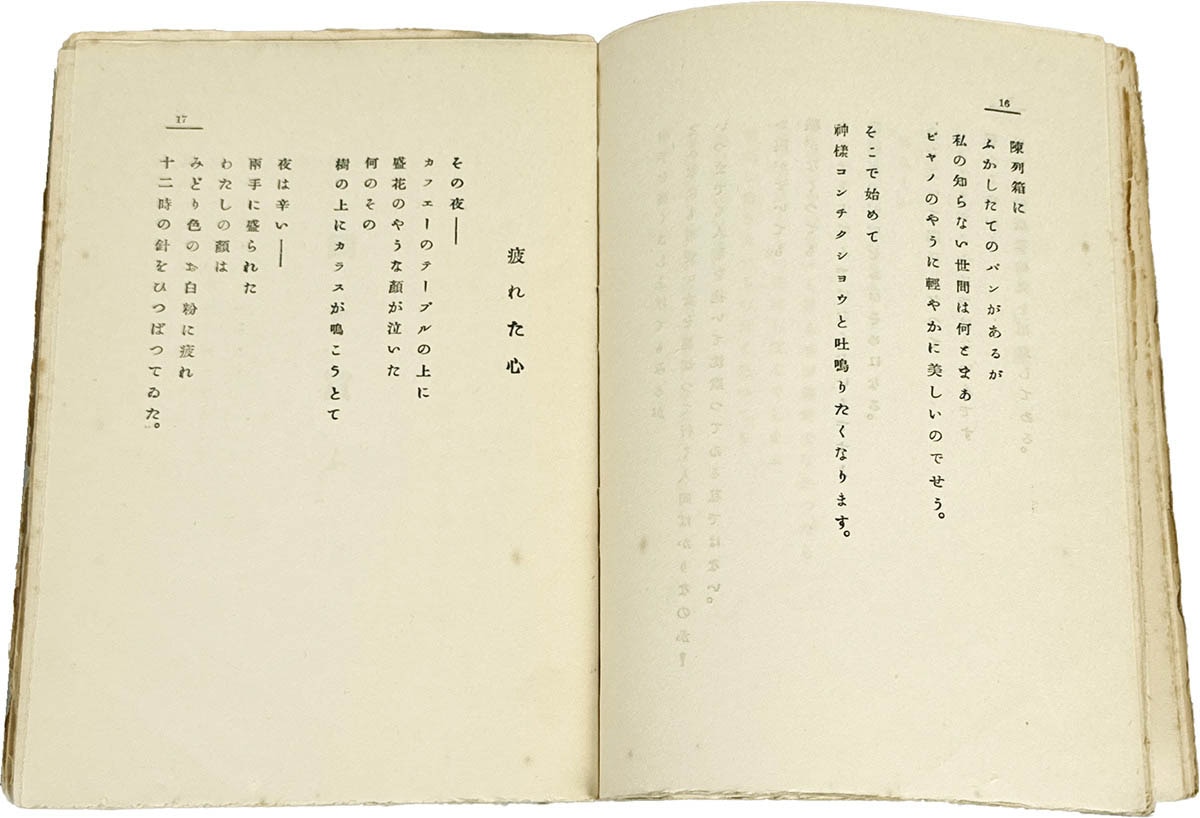 16
陳列箱に
ふかしたてのパンがあるが
私の知らない世間は何とまあ
ピヤノのやうに輕やかに美しいのでせう。
そこで始めて
神樣コンチクシヨウと吐鳴りたくなります。
17
疲れた心
その夜――
カフエーのテーブルの上に
盛花のやうな顏が泣いた
何のその
樹の上にカラスが鳴こうとて
夜は辛い――
兩手に盛られた
わたしの顏は
みどり色のお白粉に疲れ
十二時の針をひつぱつてゐた。